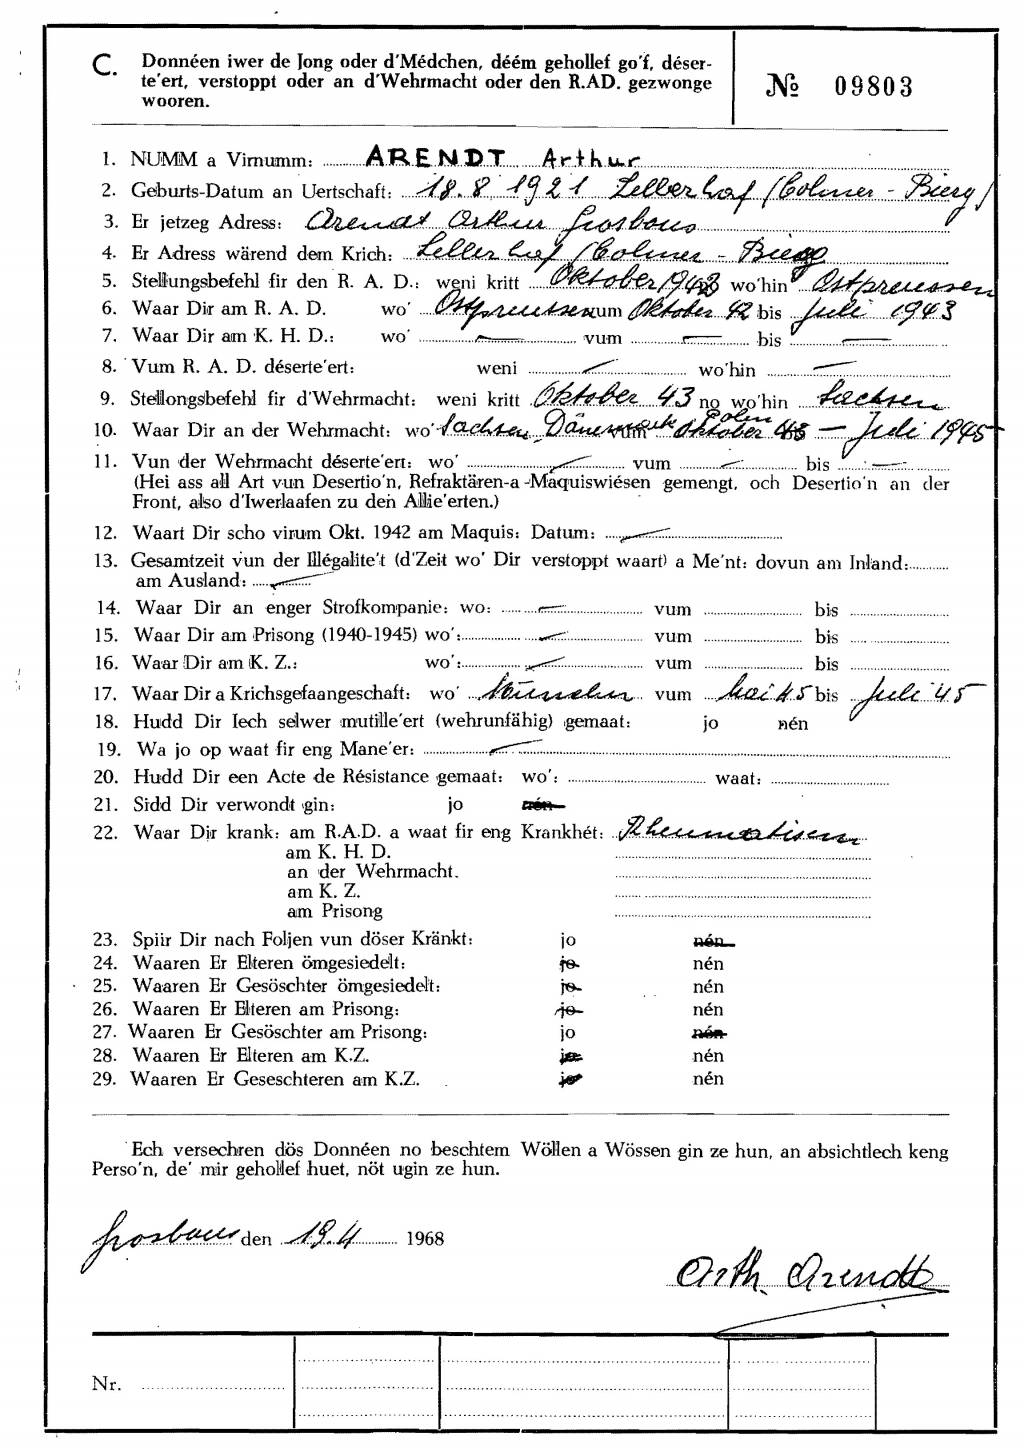 C. Donnéen iwer de Jong oder d'Médchen, déém gehollef go'f, déser-
te'ert, verstoppt oder an d'Wehrmacht oder den R.AD. gezwonge
wooren.
№ 09803
1. NUMM a Virnumm: ARENDT Arthur
2. Geburts-Datum an Uertschaft: 18.8.1921 Lellerhof (Colmer - Bierg)
3. Er jetzeg Adress: Arendt Arthur Grosbous
4. Er Adress wärend dem Krich: Lellerhof (Colmer - Bierg
5. Stellungsbefehl fir den R. A. D.: weni kritt Oktober 1942 wo'hin Ostpreussen
6. Waar Dir am R. A. D. wo' Ostpreussen vum Oktober 42 bis Juli 1943
7. Waar Dir am K. H. D.: wo' — vum — bis —
8. Vum R. A. D. déserte'ert: weni — wo'hin —
9. Stellongsbefehl fir d'Wehrmacht: weni kritt Oktober 43 no wo'hin Sachsen
10. Waar Dir an der Wehrmacht: wo' Sachsen, Dänemark Polen vum Oktober 43 — Juli 1945
11. Vun der Wehrmacht déserte'ert: wo' — vum — bis —
(Hei ass all Art vun Desertio'n, Refraktären-a-Maquiswiésen gemengt, och Desertio'n an der
Front, also d'Iwerlaafen zu den Allie'erten.)
12. Waart Dir scho virum Okt. 1942 am Maquis: Datum: —
13. Gesamtzeit vun der Illégalite't (d'Zeit wo' Dir verstoppt waart) a Me'nt: dovun am Inland:
am Ausland: —
14. Waar Dir an enger Strofkompanie: wo: — vum bis
15. Waar Dir am Prisong (1940-1945) wo': — vum bis
16. Waar Dir am K. Z.: wo': — vum bis
17. Waar Dir a Krichsgefaangeschaft: wo' München vum Mai 45 bis Juli 45
18. Hudd Dir Iech selwer mutille'ert (wehrunfähig) gemaat: jo nén
19. Wa jo op waat fir eng Mane'er: —
20. Hudd Dir een Acte de Résistance gemaat: wo': waat:
21. Sidd Dir verwondt gin: jo nén
22. Waar Dir krank: am R.A.D. a waat fir eng Krankhét: Rheumatisem
am K. H. D.
an der Wehrmacht.
am K. Z.
am Prisong
23. Spiir Dir nach Foljen vun döser Kränkt: jo nén
24. Waaren Er Elteren ömgesiedelt: jo nén
25. Waaren Er Gesöschter ömgesiedelt: jo nén
26. Waaren Er Elteren am Prisong: jo nén
27. Waaren Er Gesöschter am Prisong: jo nén
28. Waaren Er Elteren am K.Z. jo nén
29. Waaren Er Geseschteren am K.Z. jo nén
Ech versechren dös Donnéen no beschtem Wöllen a Wössen gin ze hun, an absichtlech keng
Perso'n, de' mir gehollef huet, nöt ugin ze hun.
Grosbous den 19.4 1968
Arth. Arendt
Nr.